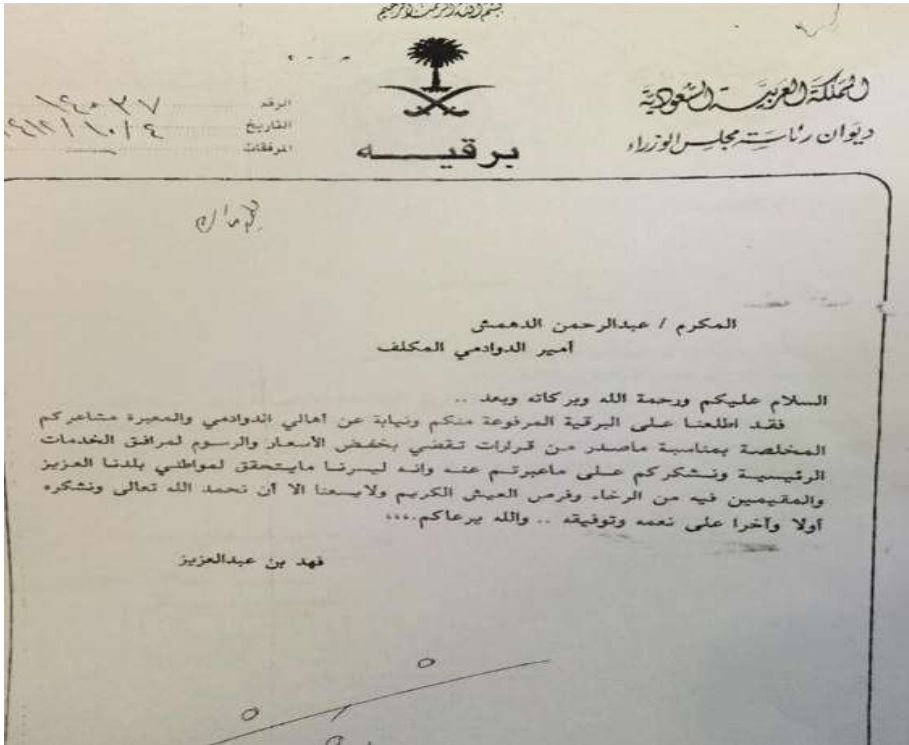 بسم الله الرحمن الرحيم
المملكة العربية السعودية
ديوان رئاسة مجلس الوزراء
الرقم
التاريخ
المرفقات
برقيــــه
المكرم / عبدالرحمن الدهمش
أمير الدوادمي المكلف
السلام عليكم ورحمة الله وبركاته وبعد ..
فقد اطلعنا على البرقية المرفوعة منكم ونيابة عن أهالي الدوادمي والمعبرة مشاعركم
المخلصة بمناسبة ماصدر من قرارات تقضي بخفض الأسعار والرسوم لمرافق الخدمات
الرئيسية ونشكركم على ماعبرتم عنه وانه ليسرنا مايتحقق لمواطني بلدنا العزيز
والمقيمين فيه من الرخاء وفرص العيش الكريم ولايسعنا الا أن نحمد الله تعالى ونشكره
أولا وآخرا على نعمه وتوفيقه .. والله يرعاكم ،،،،
فهد بن عبدالعزيز